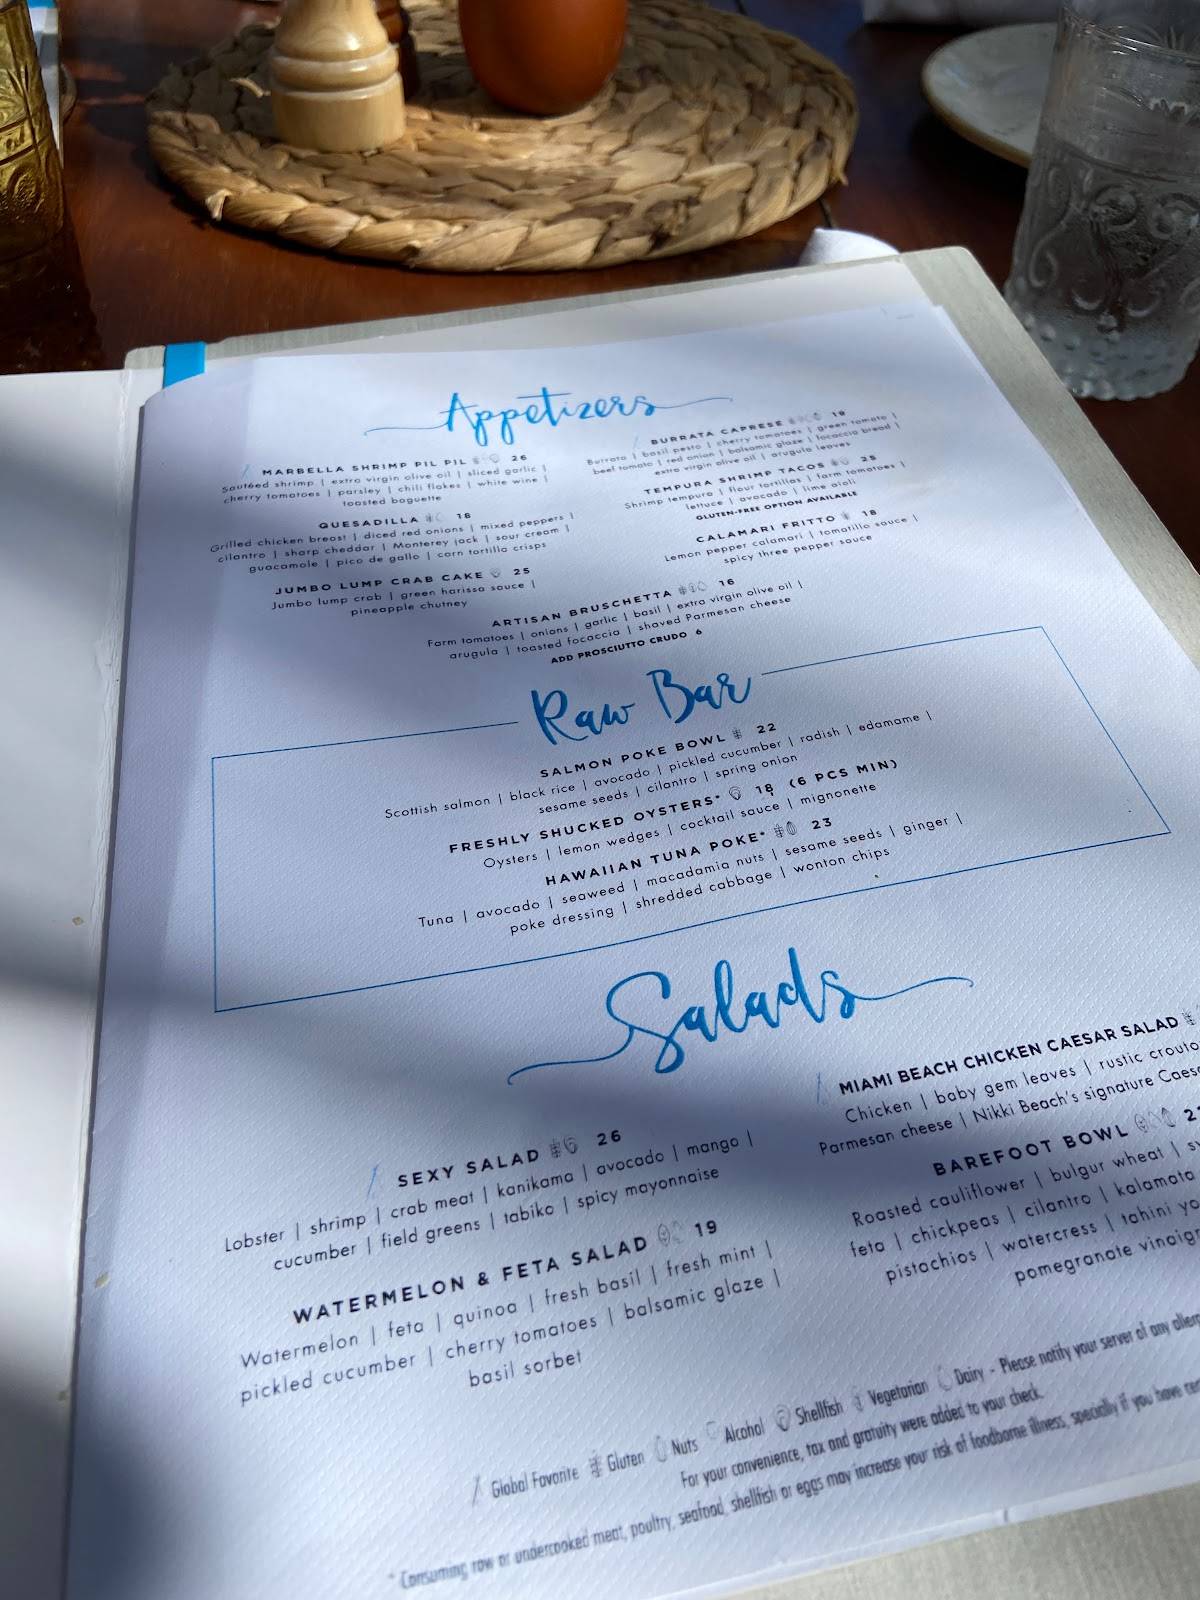 Appetizers
MARBELLA SHRIMP PIL PIL 26
Sautéed shrimp | extra virgin olive oil | sliced garlic |
cherry tomatoes | parsley | chili flakes | white wine |
toasted baguette
QUESADILLA 18
Grilled chicken breast | diced red onions | mixed peppers |
cilantro | sharp cheddar | Monterey jack | sour cream |
guacamole | pico de gallo | corn tortilla crisps
JUMBO LUMP CRAB CAKE 25
Jumbo lump crab | green harissa sauce |
pineapple chutney
BURRATA CAPRESE 19
Burrata | basil pesto | cherry tomatoes | green tomato |
beef tomato | red onion | balsamic glaze | focaccia bread |
extra virgin olive oil | arugula leaves
TEMPURA SHRIMP TACOS 25
Shrimp tempura | flour tortillas | farm tomatoes |
lettuce | avocado | lime aioli
GLUTEN-FREE OPTION AVAILABLE
CALAMARI FRITTO 18
Lemon pepper calamari | tomatillo sauce |
spicy three pepper sauce
ARTISAN BRUSCHETTA 16
Farm tomatoes | onions | garlic | basil | extra virgin olive oil |
arugula | toasted focaccia | shaved Parmesan cheese
ADD PROSCIUTTO CRUDO 6
Raw Bar
SALMON POKE BOWL 22
Scottish salmon | black rice | avocado | pickled cucumber | radish | edamame |
sesame seeds | cilantro | spring onion
FRESHLY SHUCKED OYSTERS* 18 (6 PCS MIN)
Oysters | lemon wedges | cocktail sauce | mignonette
HAWAIIAN TUNA POKE* 23
Tuna | avocado | seaweed | macadamia nuts | sesame seeds | ginger |
poke dressing | shredded cabbage | wonton chips
Salads
SEXY SALAD 26
Lobster | shrimp | crab meat | kanikama | avocado | mango |
cucumber | field greens | tabiko | spicy mayonnaise
WATERMELON & FETA SALAD 19
Watermelon | feta | quinoa | fresh basil | fresh mint |
pickled cucumber | cherry tomatoes | balsamic glaze |
basil sorbet
MIAMI BEACH CHICKEN CAESAR SALAD
Chicken | baby gem leaves | rustic crouto
Parmesan cheese | Nikki Beach's signature Caes
BAREFOOT BOWL
Roasted cauliflower | bulgur wheat |
feta | chickpeas | cilantro | kalamata
pistachios | watercress | tahini yo
pomegranate vinaigr
Global Favorite Gluten Nuts Alcohol Shellfish Vegetarian Dairy - Please notify your server of any allerg
For your convenience, tax and gratuity were added to your check.
* Consuming raw or undercooked meat, poultry, seafood, shellfish or eggs may increase your risk of foodborne illness, specially if you have cer